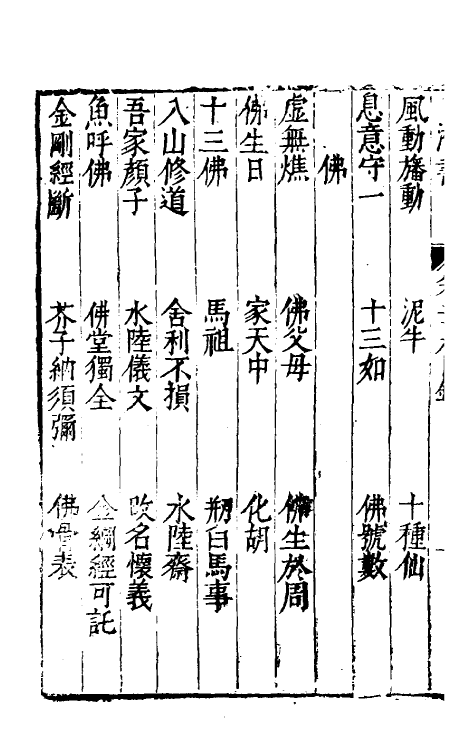 風動旛動 泥牛 十種仙
息意守一 十三如 佛號數
佛
虛無燋 佛父母 佛生於周
佛生日 家天中 化胡
十三佛 馬祖 朔白馬事
入山修道 舍利不損 水陸齋
吾家顏子 水陸儀文 改名懷義
魚呼佛 佛堂獨全 金綱經可託
金剛經斷 芥子納須彌 佛骨表